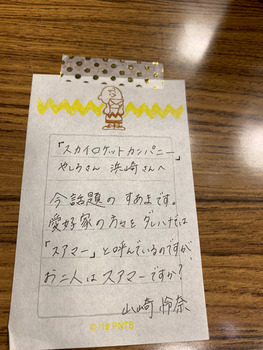 「スカイロケットカンパニー」
やしろさん 浜崎さんへ
今話題のすあまです。
愛好家の方々をダレハナでは
「スアマー」と呼んでいるのですが、
お二人はスアマーですか?
山崎怜奈
©'19 PNTS